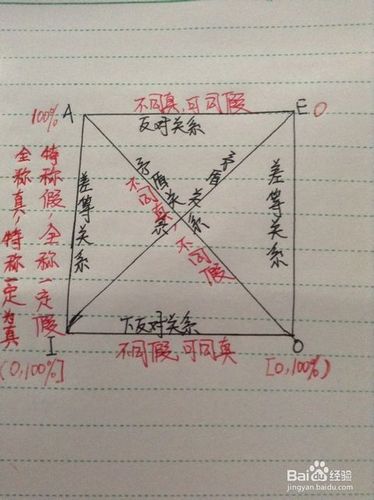 不同真,可同假
100% A
E 0
反对关系
矛盾关系
矛盾关系
不同真,不同假
差等关系
差等关系
特称假,全称一定假
全称真,特称一定为真
下反对关系
I
O
不同假,可同真
(0,100%]
[0,100%)
Baidu 经验
jingyan.baidu.com